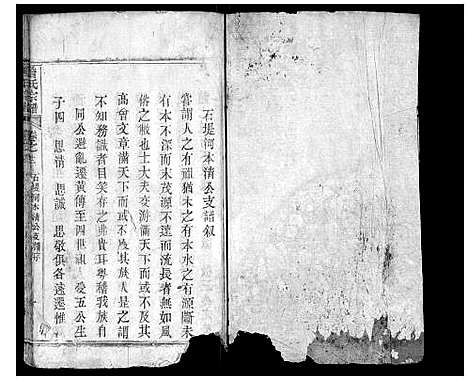 石堤河本清公支譜叙
嘗謂人之有祖猶木之有本水之有源斷未
有本不深而末茂源不遠而流長者無如風
俗之敝也士大夫交游滿天下而或不及其
高曾文章滿天下而或不及其族人是之謂
不知務識者目笑存之弗貴耳粤稽我族自
同公避亂遷黃傳至四世祖 愛五公生
子四 思情 思誠 思敬俱各遠遷惟
氏宗譜
石堤河本清公支譜序